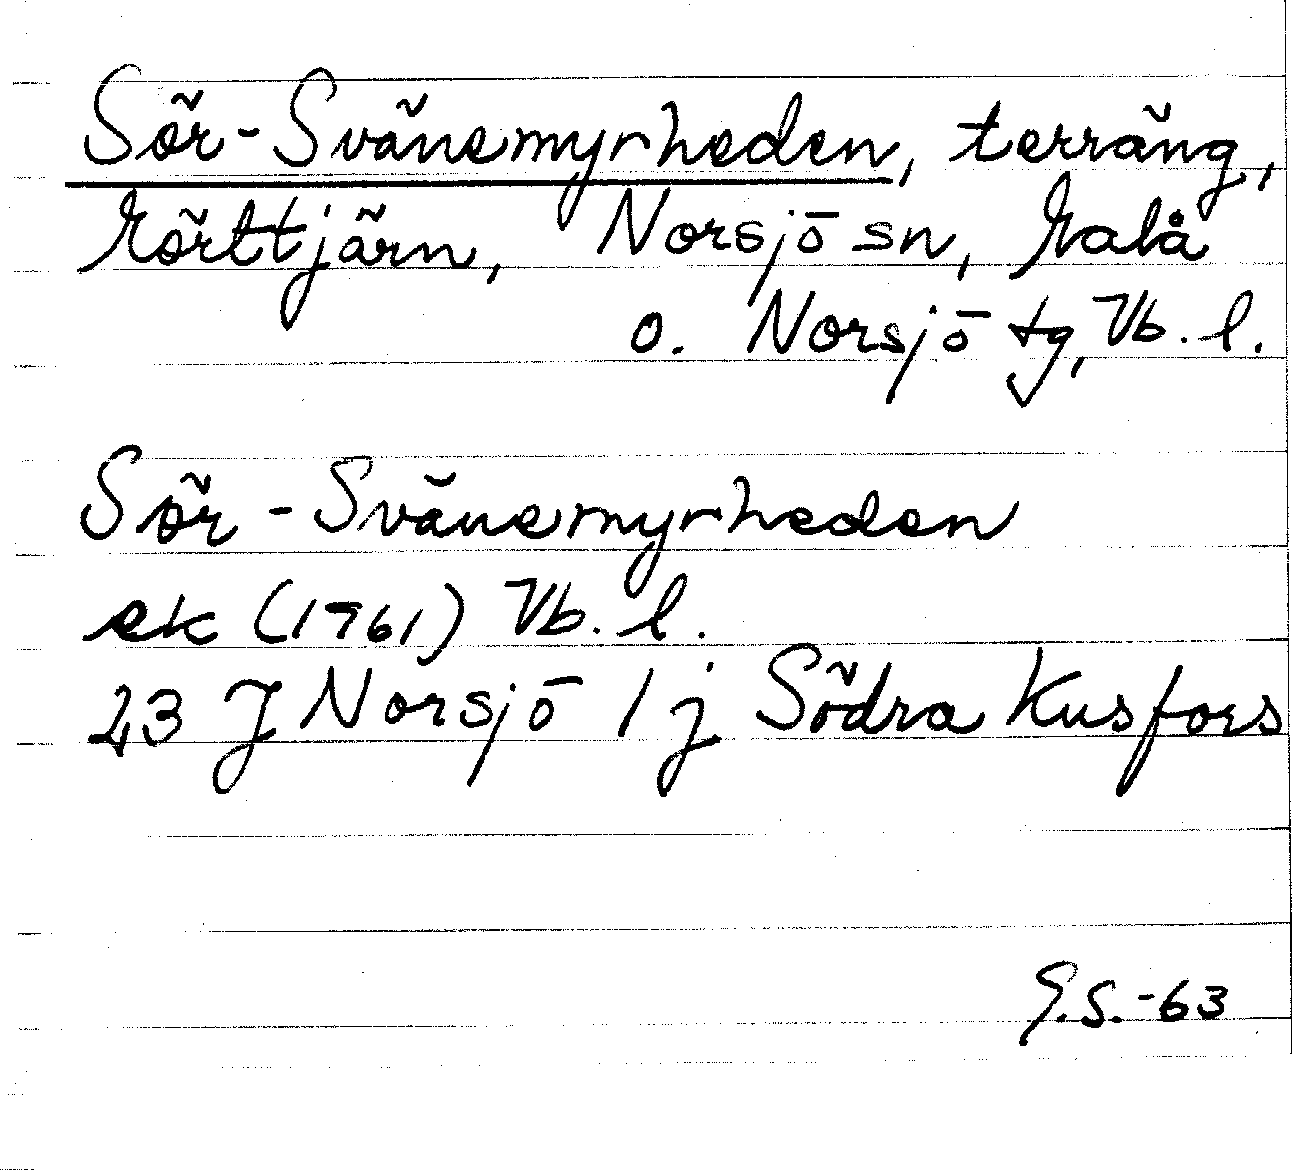 Sör-Svänemyrheden, terräng,
Mörttjärn, Norsjö sn, Malå
o. Norsjö tg, Vb. l.
Sör-Svänemyrheden
ek (1961) Vb. l.
23 J Norsjö 1 j Södra Kusfors
G.S.-63